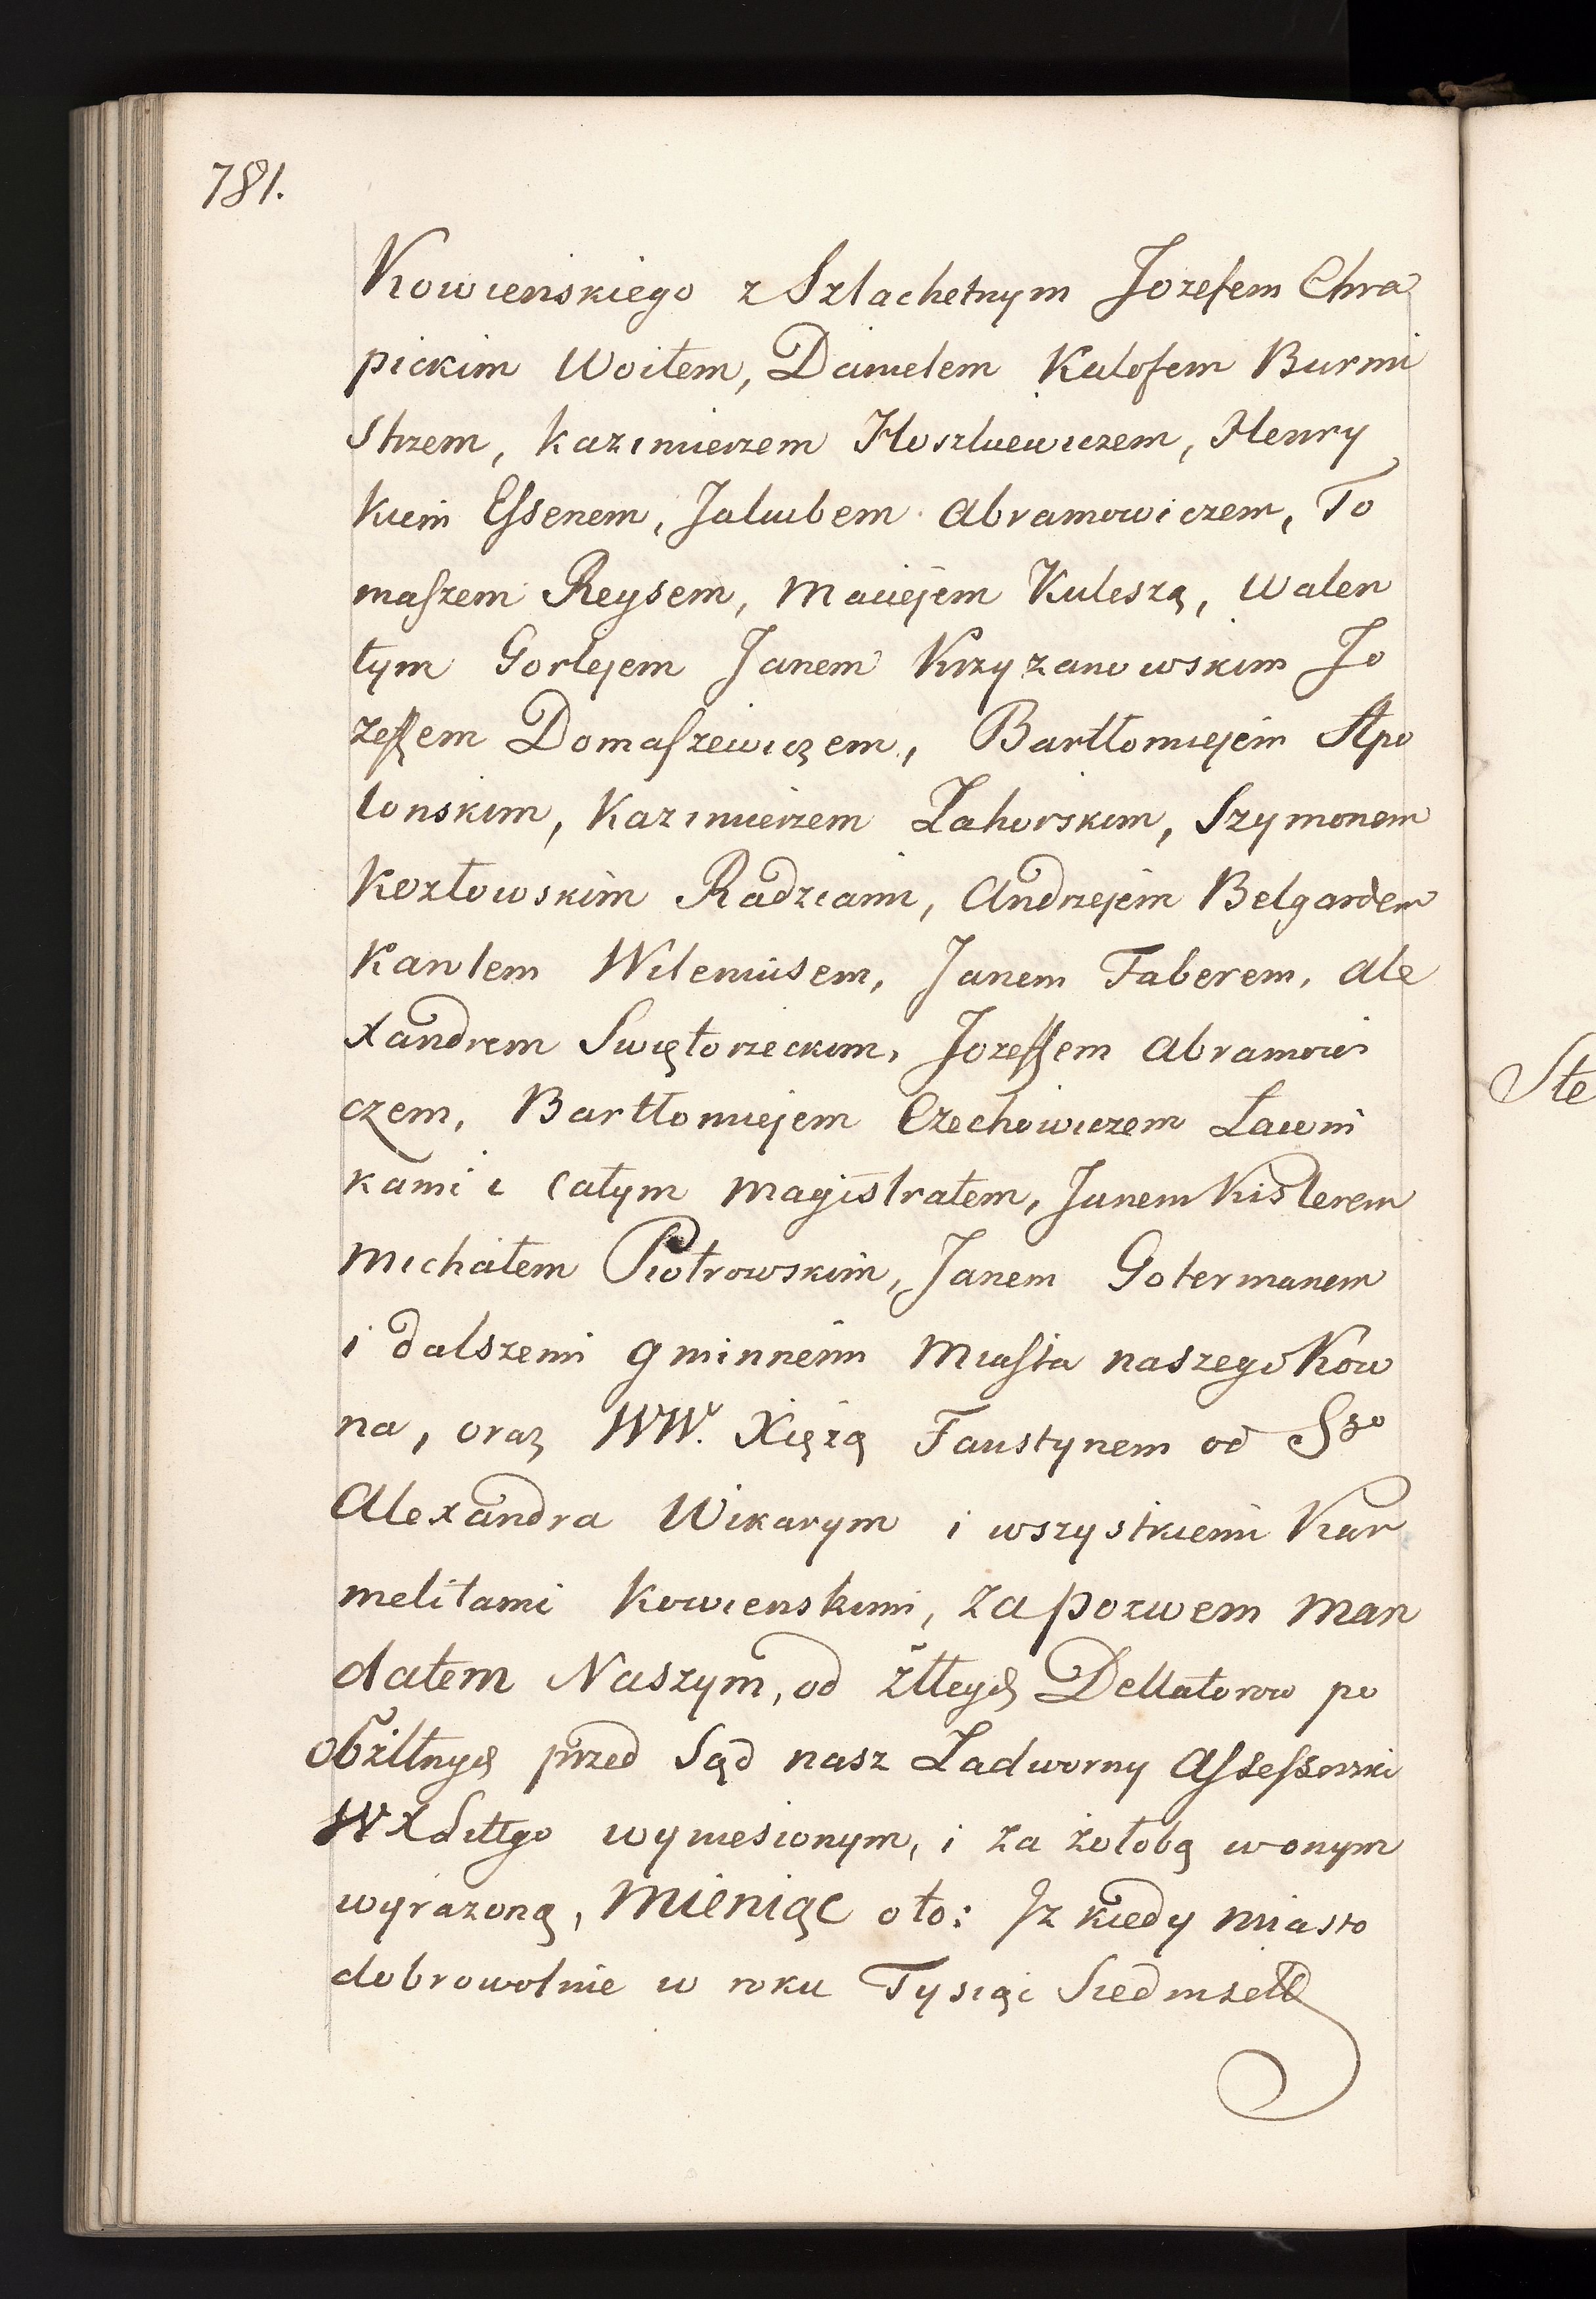 781.
Kowienskiego z Szlachetnym Jozefem Chra
pickim Woitem, Danielem Kalofem Burmi
strzem, Kazimierzem Hoszluewiczem, Henry
kiem Essenem, Jakubem Abramowiczem, To
maszem Reysem, Maciejem Kuleszą, Walen
tym Gorlejem Janem Krzyzanowskim Jo
zeffem Domaszewiczem, Bartłomiejem Apo
lonskim, Kazimierzem Zahorskim, Szymonem
Kozłowskim Radziami, Andrzejem Belgardem
Karolem Wilemusem, Janem Faberem, Ale
xandrem Swiętorzeckim, Jozeffem Abramowi
czem, Bartłomiejem Czechowiczem Ławni
kami i całym Magistratem, Janem Kislerem
Michałem Piotrowskim, Janem Gotermanem
i dalszemi gminnemi Miasta naszego Kow
na, oraz WW. Xiężą Faustynem od Sgo
Alexandra Wikarym i wszystkiemi Kar
melitami Kowienskimi, za pozwem Man
datem Naszym, od żłłych Dellatorow po
obżiłłnych przed Sąd nasz Zadworny Assessorski
WXLittgo wyniesionym, i za żołobą w onym
wyrazoną, Mieniąc oto: Iz kiedy miasto
dobrowolnie w roku Tysiąc Siedmset
Ste